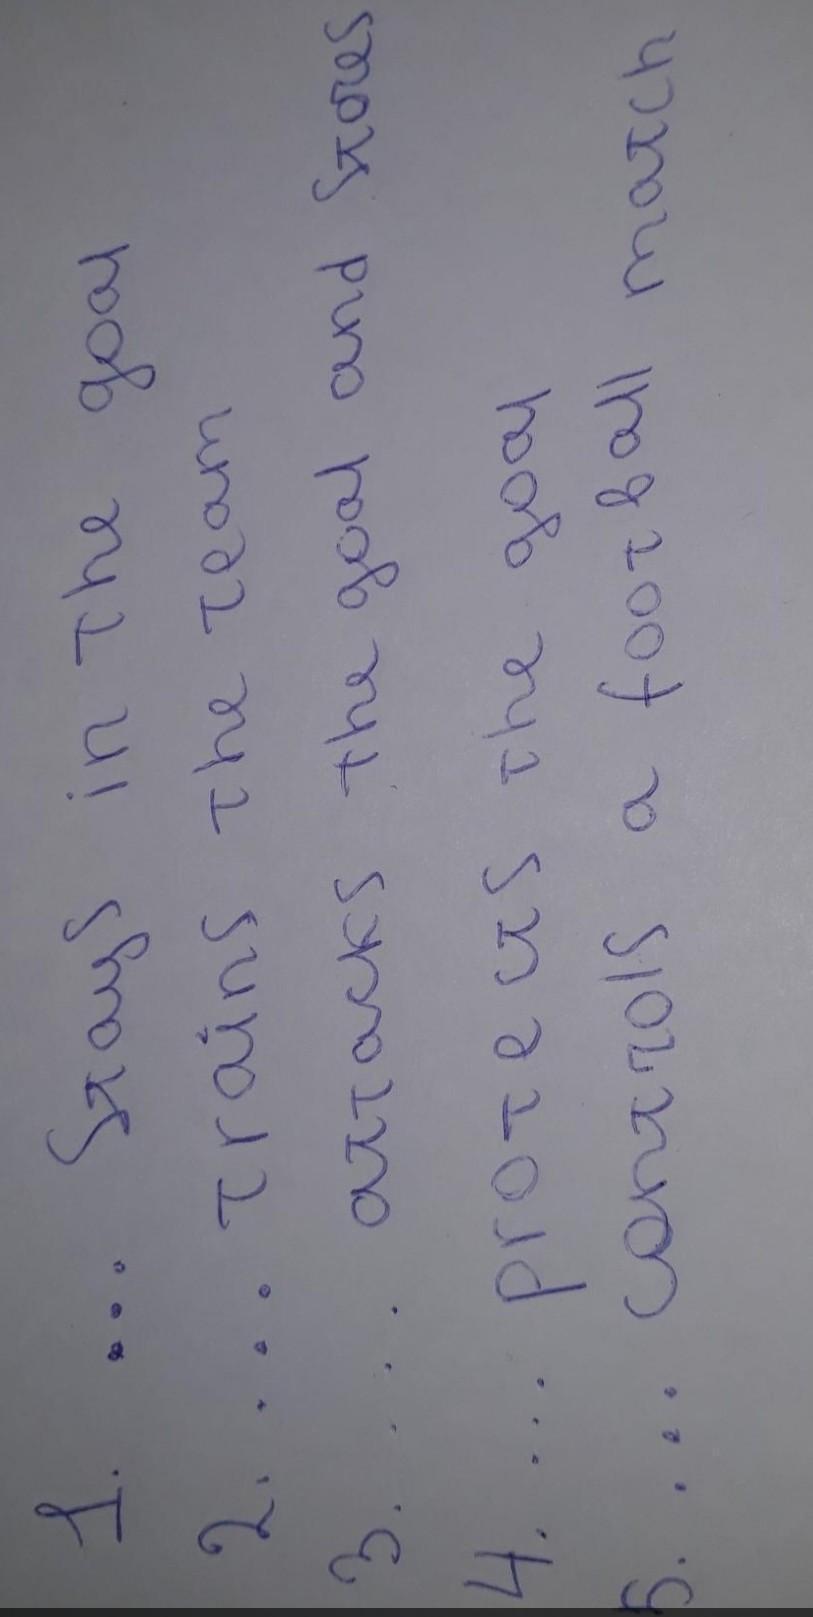 1. ... stays in the goal
2. .... trains the team
3. .... attacks the goal and scores
4. ... protects the goal
5. ... controls a football match